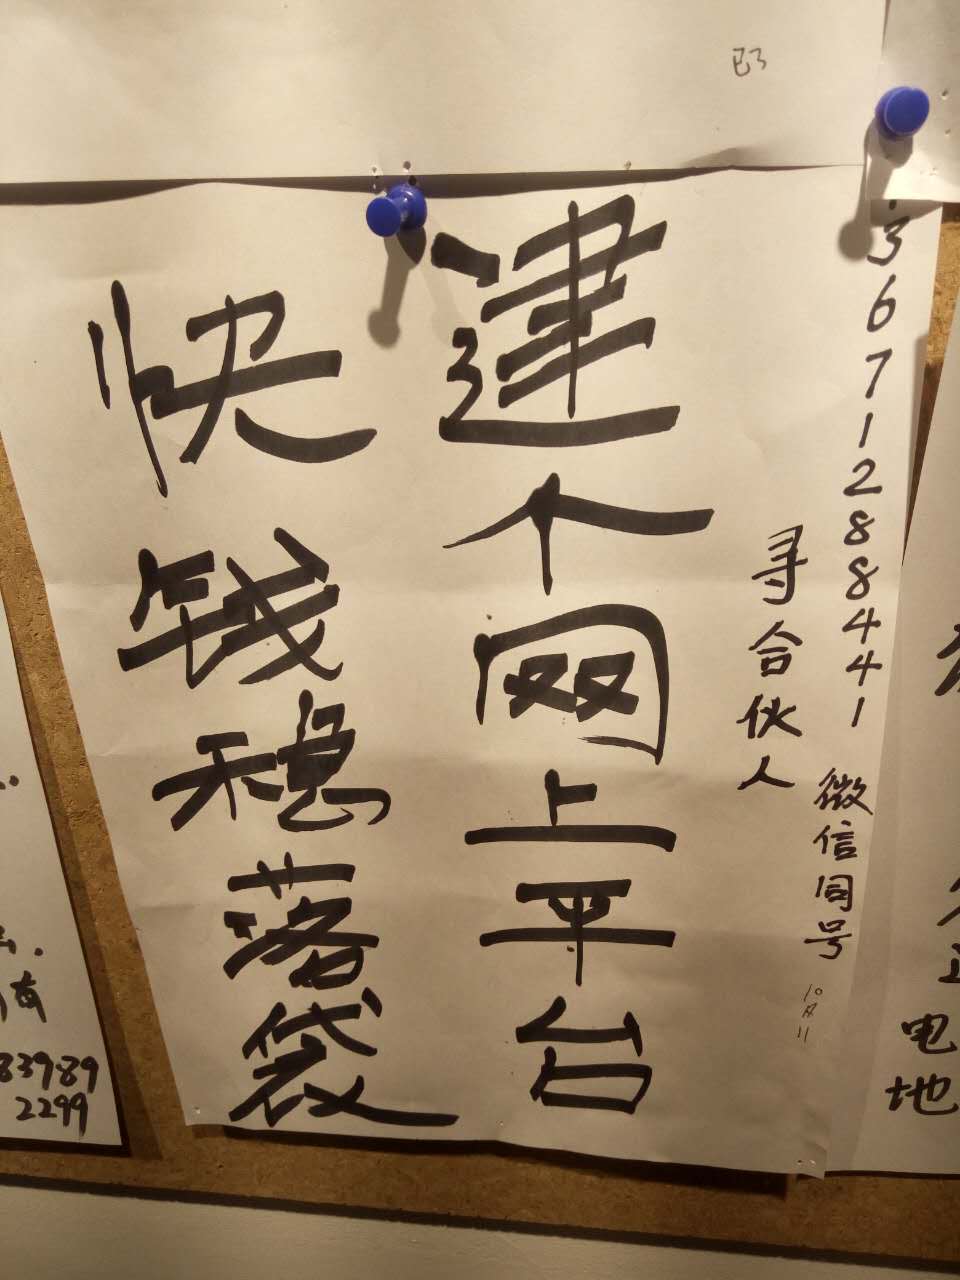 已了
3671288441 微信同号
10月11
寻合伙人
建个网上平台
快钱稳落袋
南
83989
2299
电
地